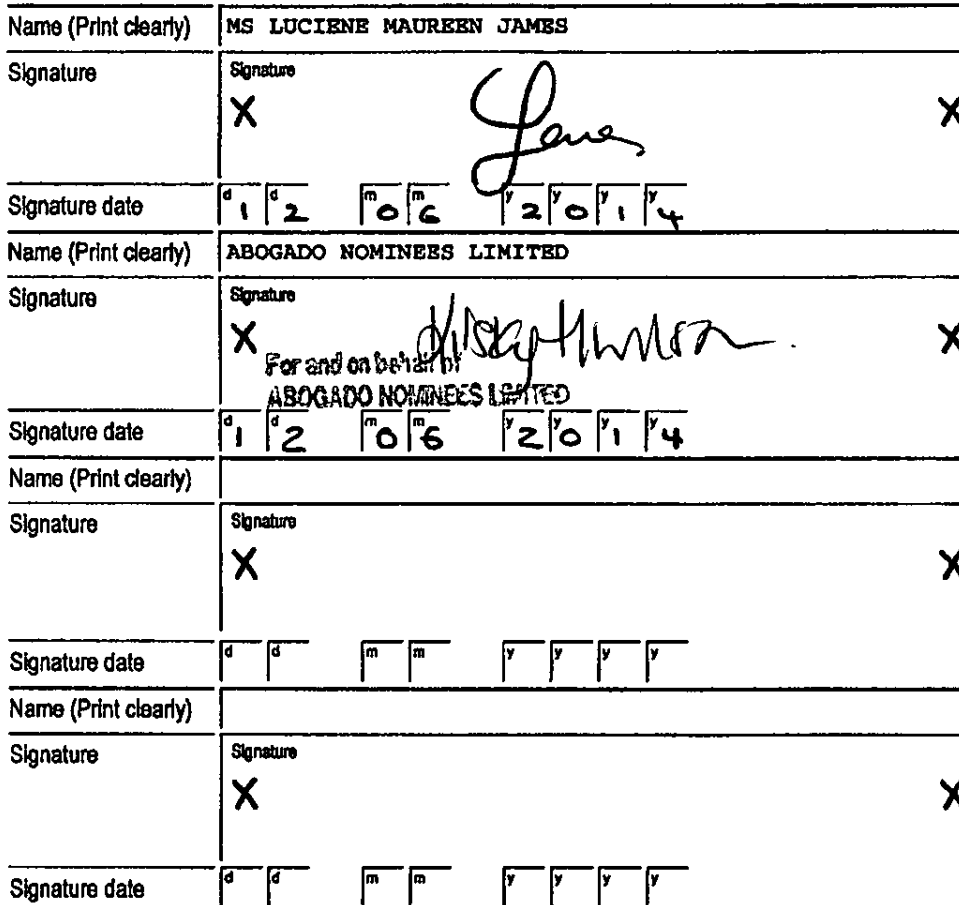 Name (Print clearly) MS LUCIENE MAUREEN JAMES
Signature Signature
X X
Signature date d 1 d 2 m 0 m 6 y 2 y 0 y 1 y 4
Name (Print clearly) ABOGADO NOMINEES LIMITED
Signature Signature
X X
For and on behalf of
ABOGADO NOMINEES LIMITED
Signature date d 1 d 2 m 0 m 6 y 2 y 0 y 1 y 4
Name (Print clearly)
Signature Signature
X X
Signature date d d m m y y y y
Name (Print clearly)
Signature Signature
X X
Signature date d d m m y y y y